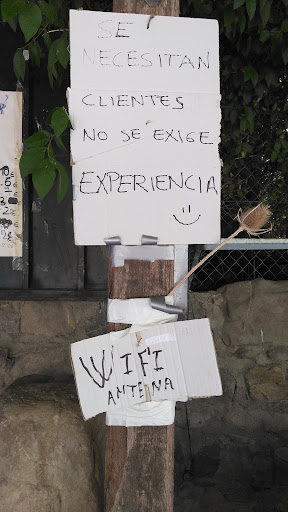 SE
NECESITAN
CLIENTES
NO SE EXIGE
EXPERIENCIA
WIFI
ANTENA